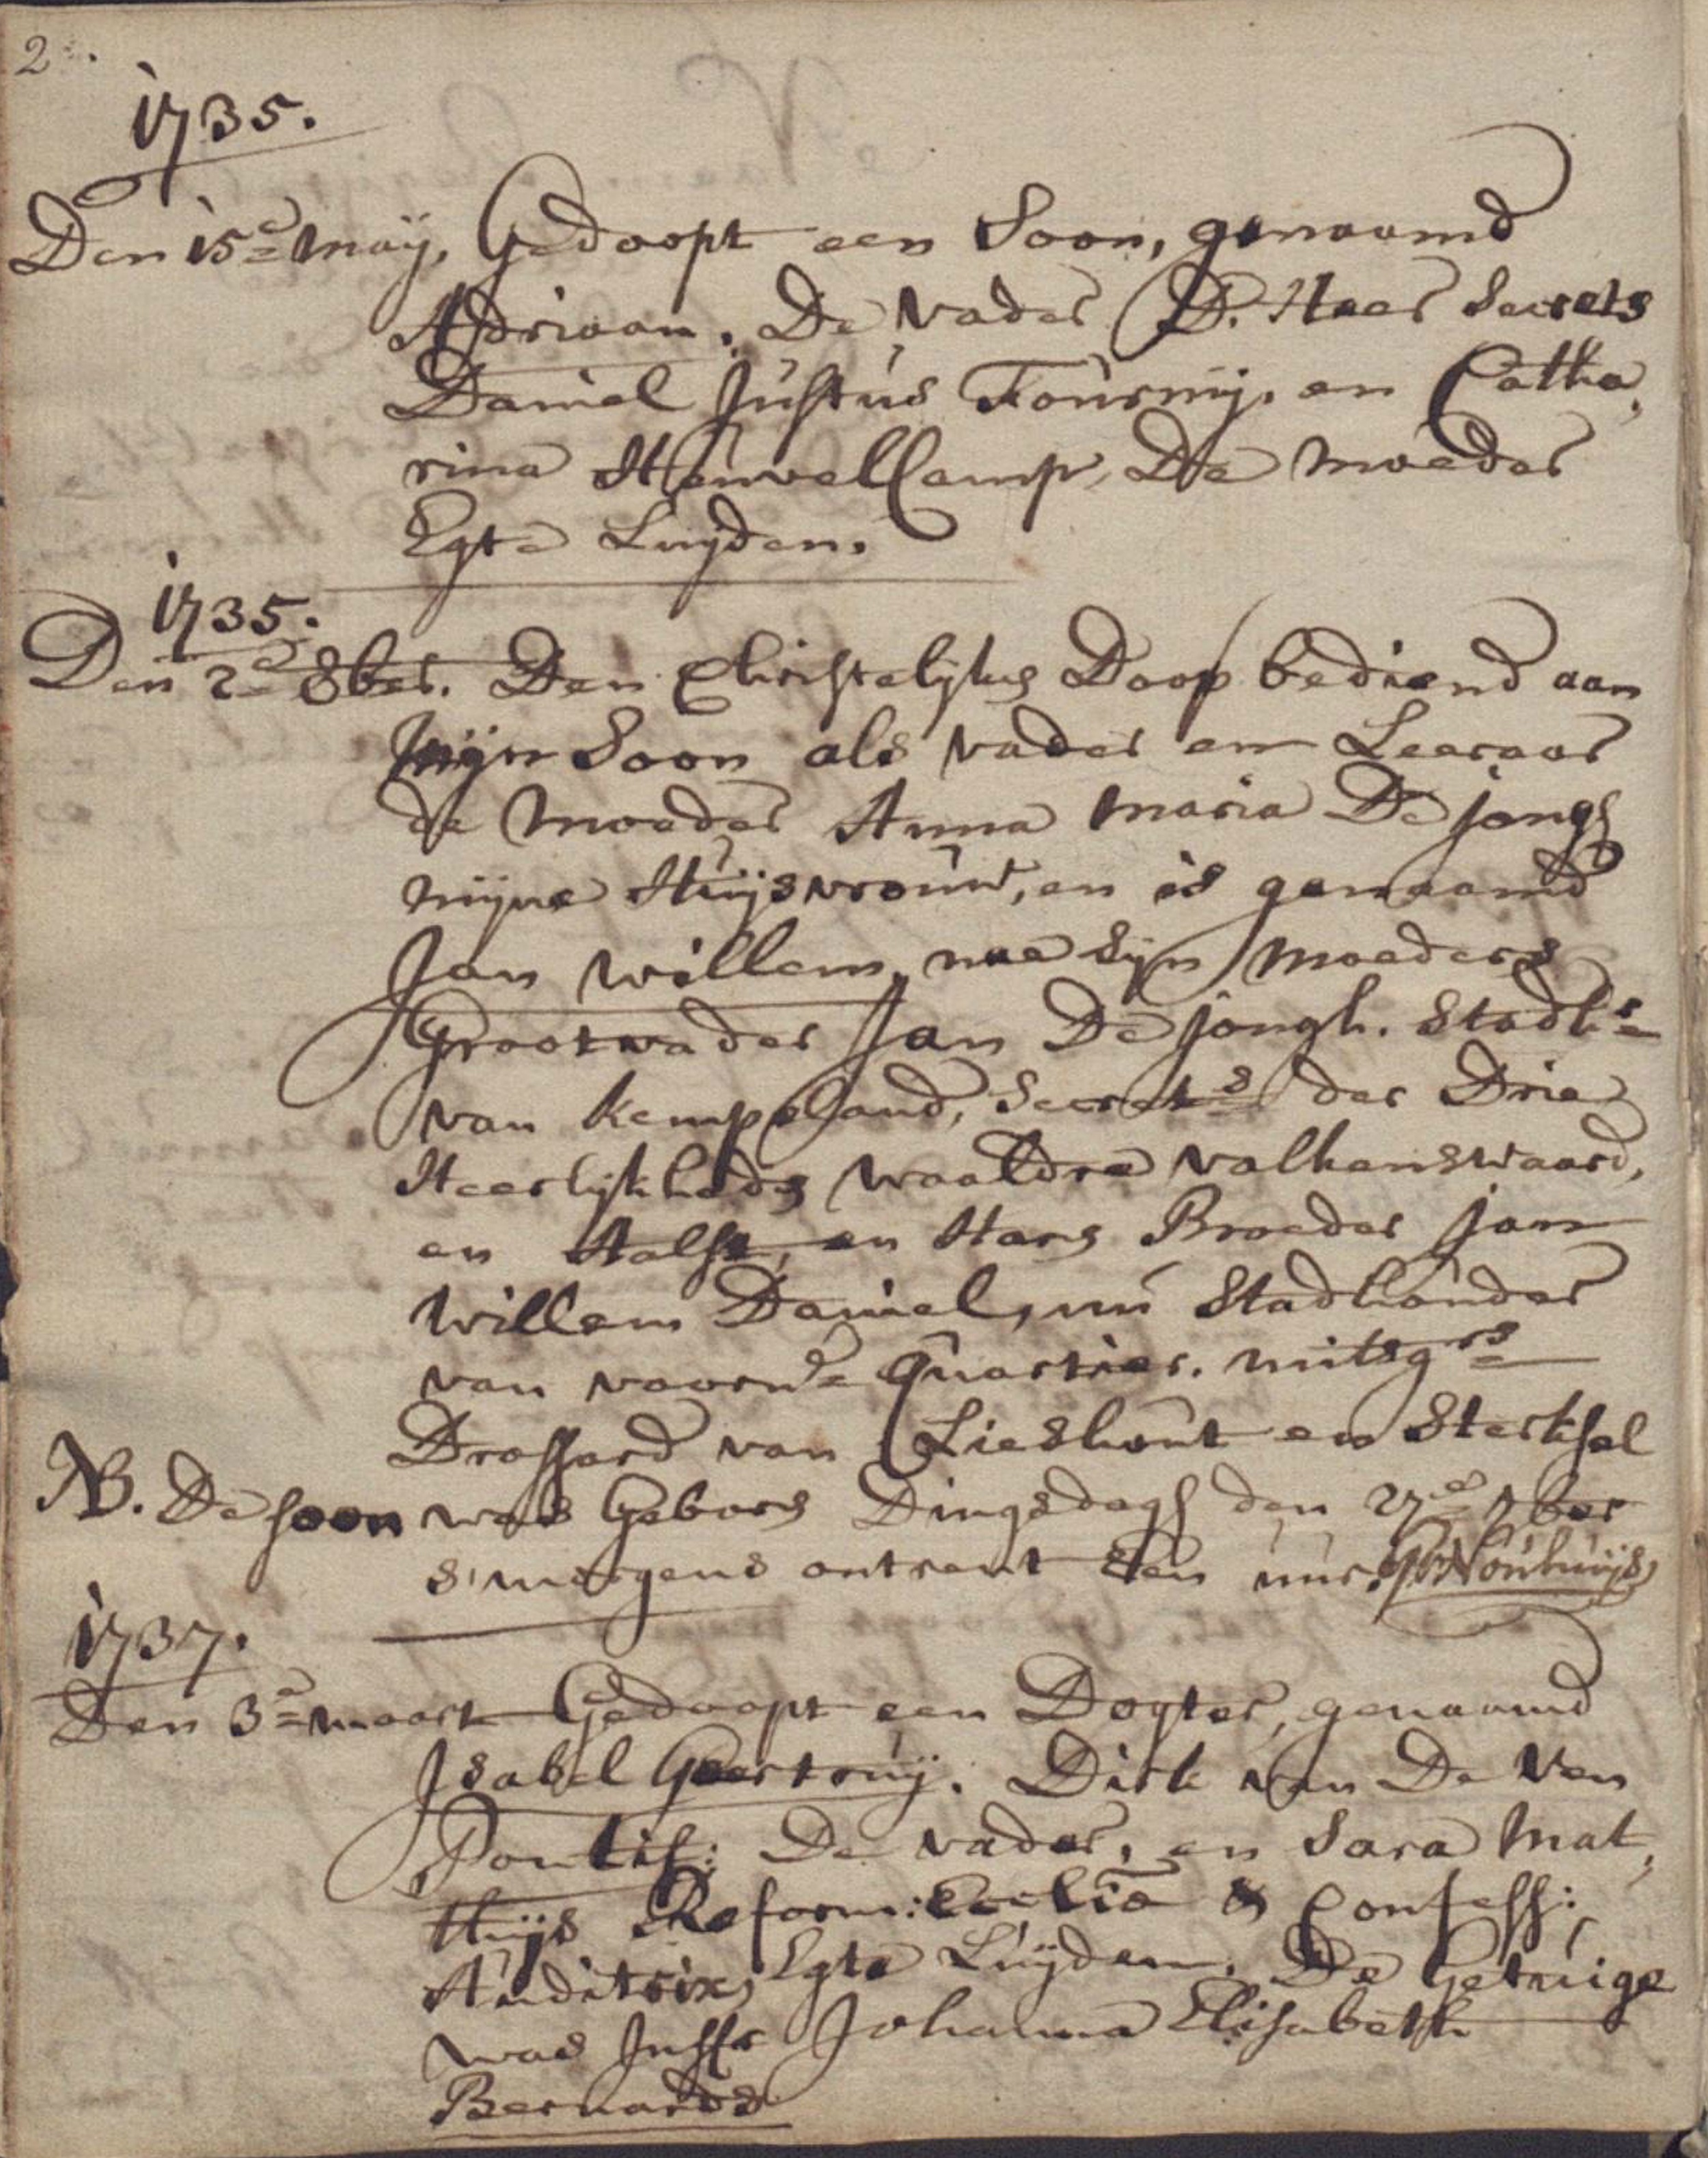 2.
1735.
Den 15e maij. Gedoopt een Soon, genaamd
Adriaan. De vader D. Heer Secrets
Daniel Justus Fournij, en Catha,
rina Heuvelcamp, De moeder
Egte Luijden.
1735.
Den 2e 8ber. Den Christelijke Doop bediend aan
mijn Soon als vader en Leeraar
de moeder Anna maria De jongh
mijne Huijsvrouw, en is genaamd
Jan willem, nae sijn moeders
Grootvader Jan De jongh. Stadhr
van kempeland, Secrets der Drie
Heerlijkhede waaldre valkenswaard,
en Aalst, en Hare Broeder jan
willem Daniel, nu Stadhouder
van voorne quartier. mitsgrs
Drossard van Lieshout en Sterksel
NB. De soon was Gebore Dingsdagh den 27e 7ber
s'morgens ontrent een uur. Nouhuijs
1737.
Den 3e maart Gedoopt een Dogter, genaamd
Isabel Geertruij. Dirk van De Ven
Pontif: De vader, en Sara Mat,
thijs Reform: Ecclia & Confess:
Auditrix, Egte Luijden. De Getuige
was Juffr Johanna Elisabeth
Bernards